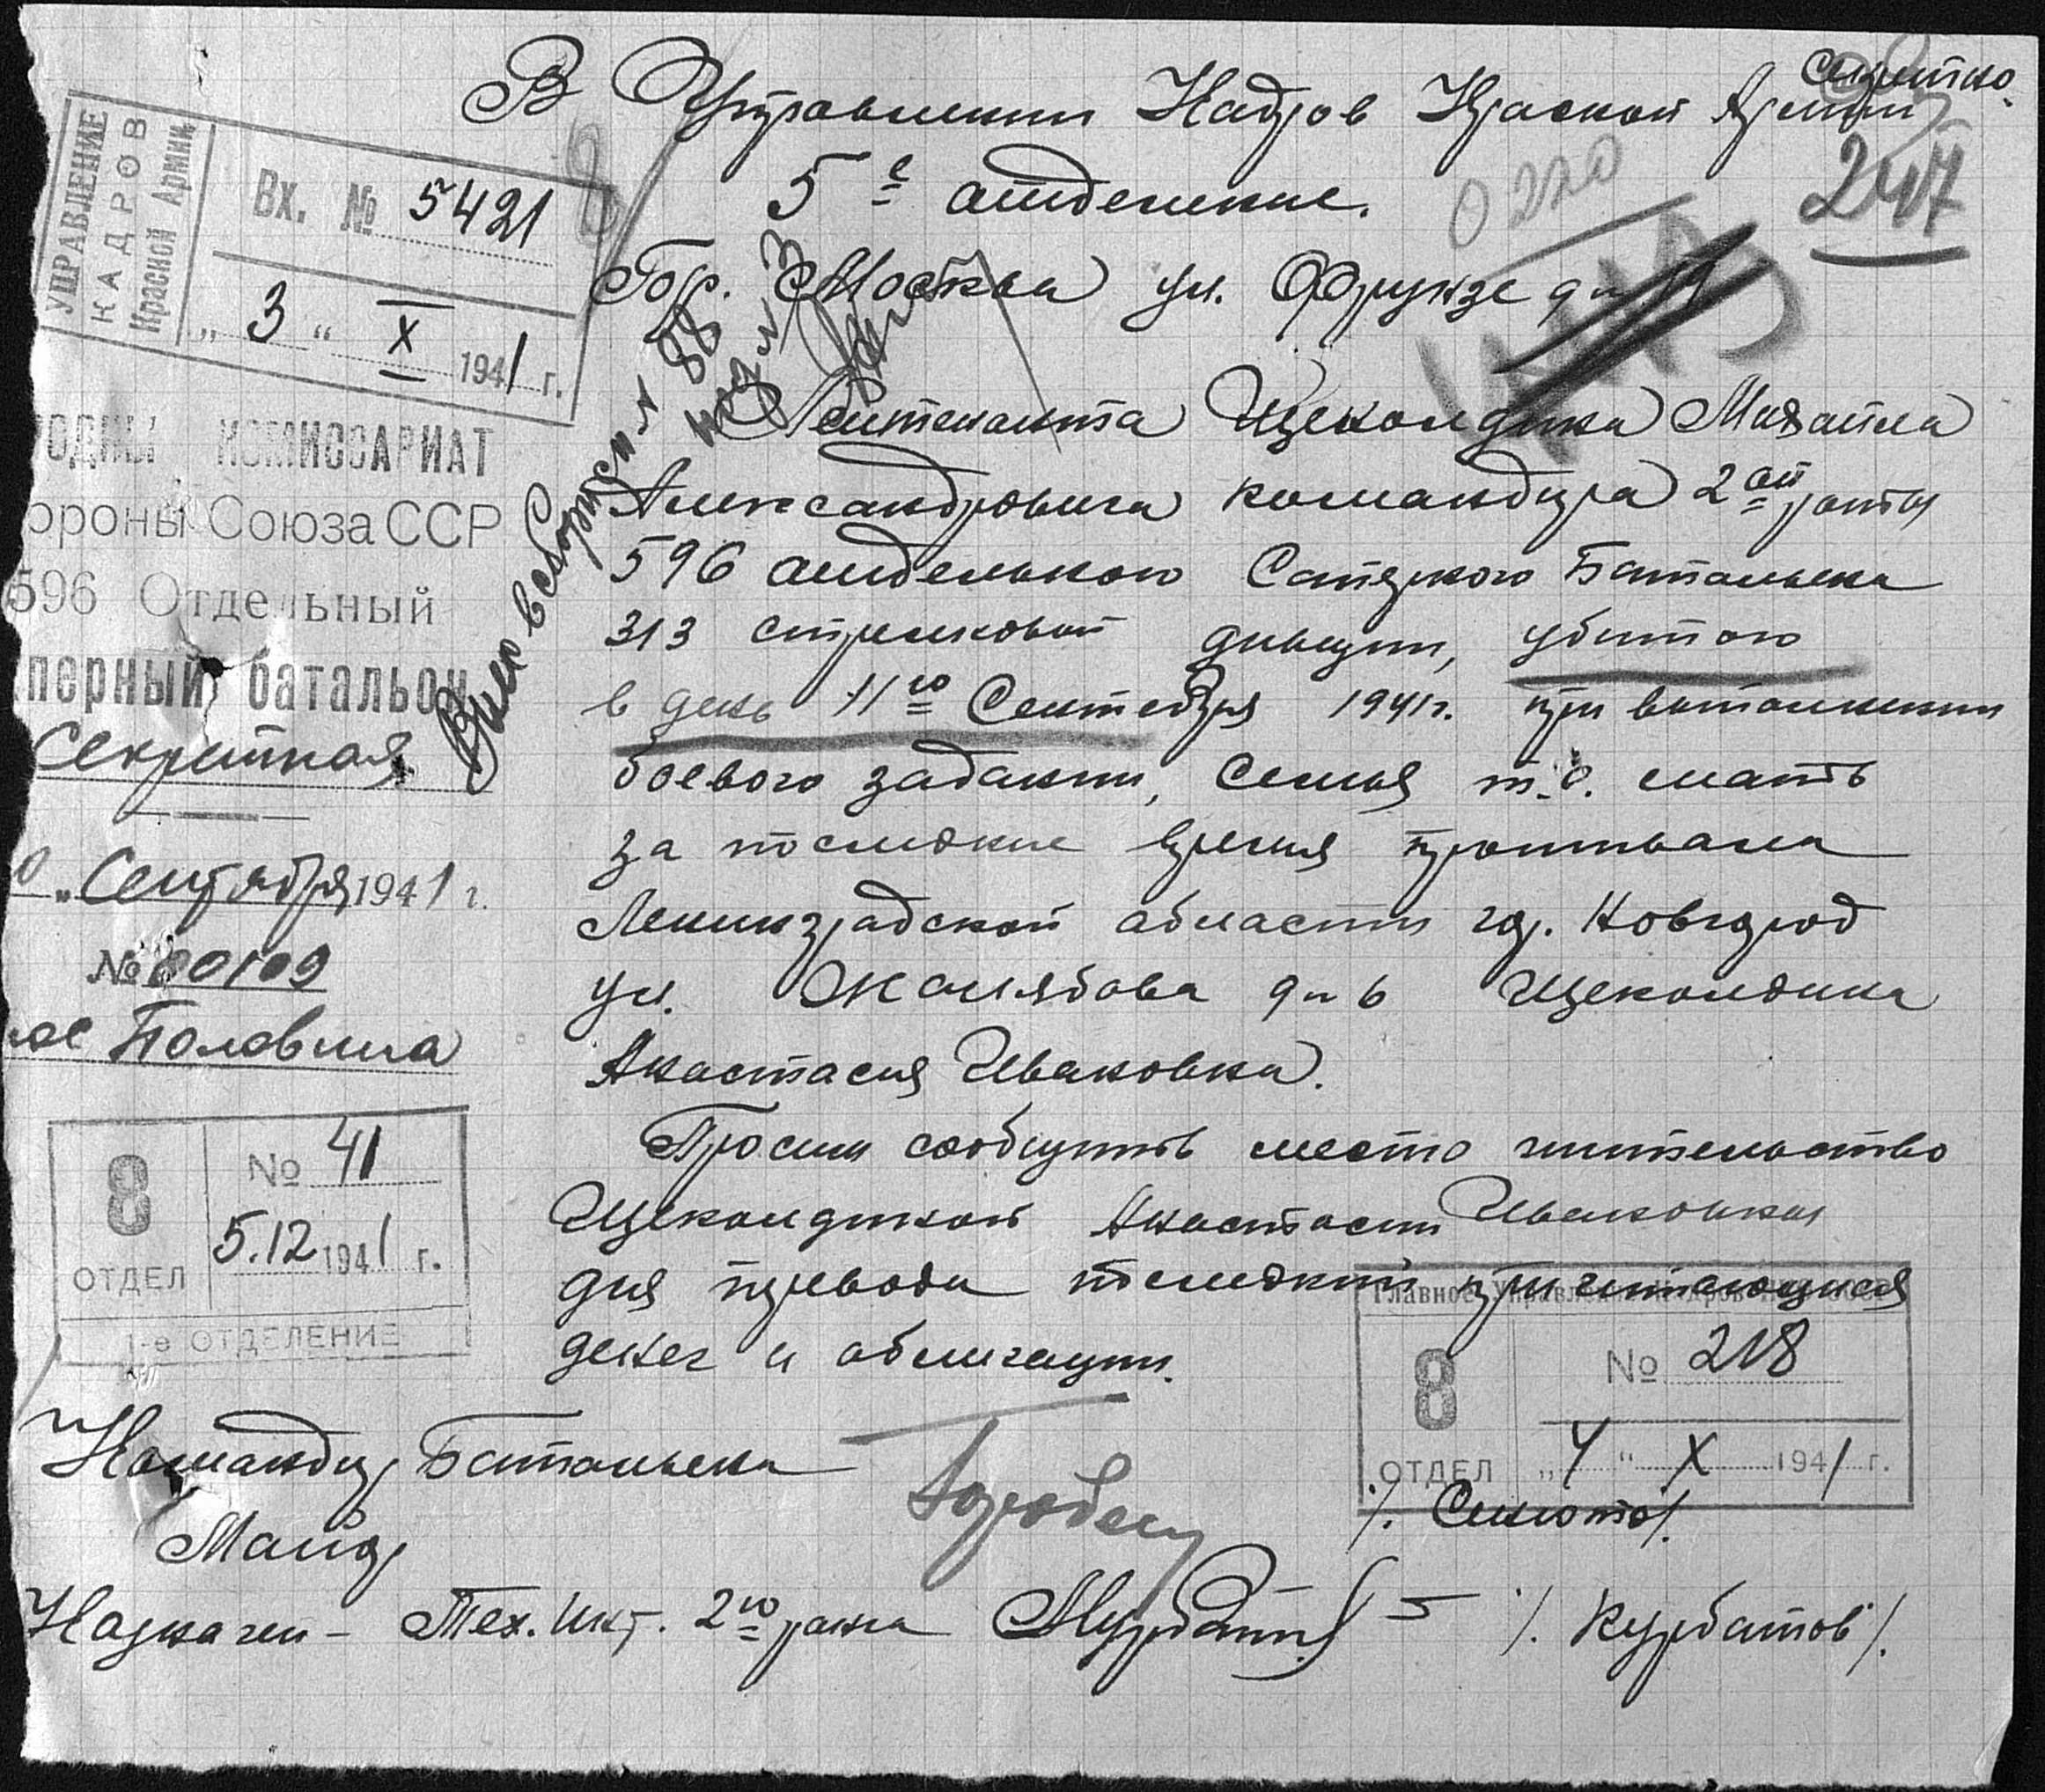 Секретно.
В Управлении Кадров Красной Армии
247
0220
5 е отделение.
Гор. Москва ул. Фрунзе д N 19
УПРАВЛЕНИЕ
КАДРОВ
Красной Армии
Вх. № 5421
„ 3 “ X 1941 г.
РОДНЫЙ КОМИССАРИАТ
ороны Союза ССР
596 Отдельный
перный батальон
Секретная
0 „ Сентября 1941 г.
№ 00109
Половина
Лейтенанта Щеколдина Михаила
Александровича командира 2ой роты
596 отдельного Саперного Батальена
313 стрелковой дивизии, убитого
в день 11го Сентября 1941 г. при выполнении
боевого задании, Семья т.е. мать
за последние время проживала
Ленинградской области гор. Новгород
ул. Желябова д N 6 Щеколдина
Анастасия Ивановна.
Просим сообщить место жительство
Щеколдиной Анастасии Ивановны
для перевода последний причитающися
денег и облигации.
8
ОТДЕЛ
№ 41
5.12 1941 г.
1-е ОТДЕЛЕНИЕ
Главное Управление
8
ОТДЕЛ
№ 218
„ 4 “ X 1941 г.
Командир Батальена
Майор
Казначей – Тех. Инт. 2го ранга /. Курбатов /.